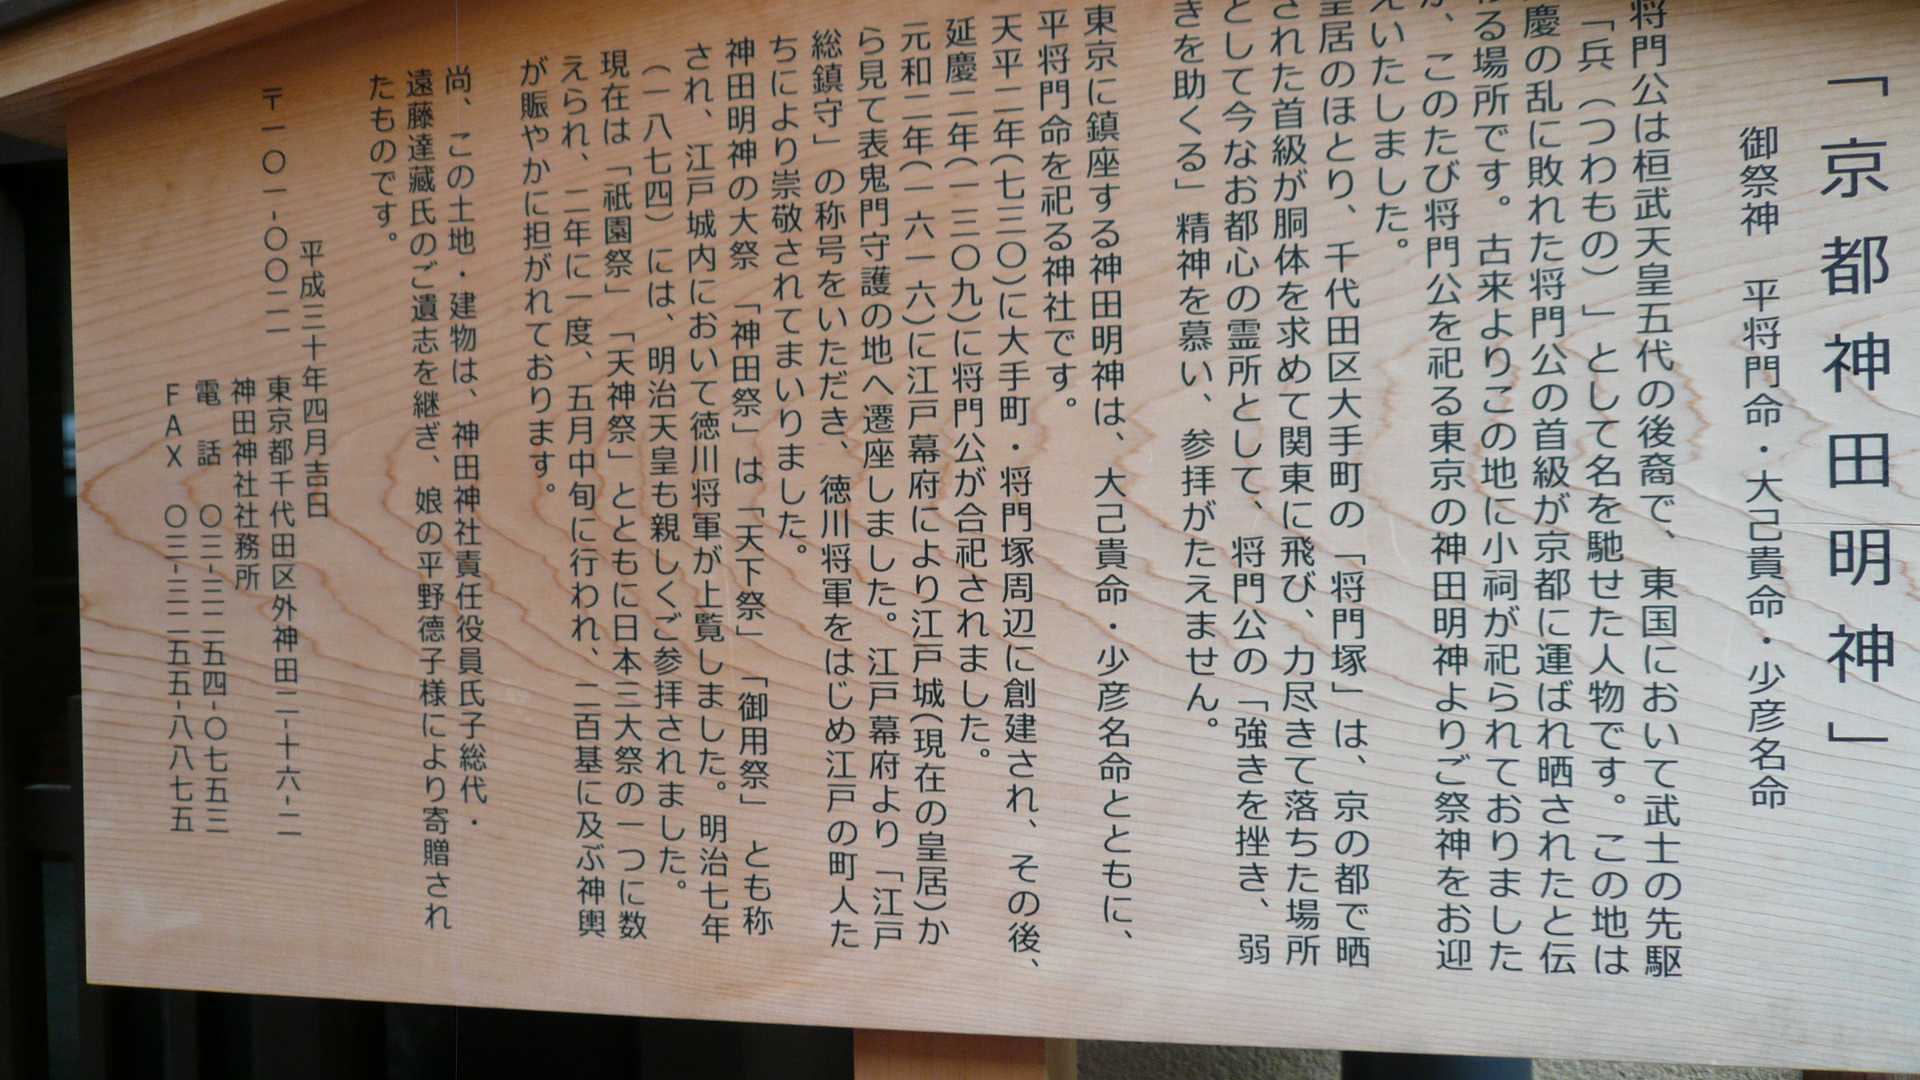 「京都神田明神」
御祭神　平将門命・大己貴命・少彦名命
将門公は桓武天皇五代の後裔で、東国において武士の先駆
「兵（つわもの）」として名を馳せた人物です。この地は
慶の乱に敗れた将門公の首級が京都に運ばれ晒されたと伝
る場所です。古来よりこの地に小祠が祀られておりました
、このたび将門公を祀る東京の神田明神よりご祭神をお迎
えいたしました。
皇居のほとり、千代田区大手町の「将門塚」は、京の都で晒
された首級が胴体を求めて関東に飛び、力尽きて落ちた場所
として今なお都心の霊所として、将門公の「強きを挫き、弱
きを助くる」精神を慕い、参拝がたえません。
東京に鎮座する神田明神は、大己貴命・少彦名命とともに、
平将門命を祀る神社です。
天平二年(七三〇)に大手町・将門塚周辺に創建され、その後、
延慶二年(一三〇九)に将門公が合祀されました。
元和二年(一六一六)に江戸幕府により江戸城(現在の皇居)か
ら見て表鬼門守護の地へ遷座しました。江戸幕府より「江戸
総鎮守」の称号をいただき、徳川将軍をはじめ江戸の町人た
ちにより崇敬されてまいりました。
神田明神の大祭「神田祭」は「天下祭」「御用祭」とも称
され、江戸城内において徳川将軍が上覧しました。明治七年
（一八七四）には、明治天皇も親しくご参拝されました。
現在は「祇園祭」「天神祭」とともに日本三大祭の一つに数
えられ、二年に一度、五月中旬に行われ、二百基に及ぶ神輿
が賑やかに担がれております。
尚、この土地・建物は、神田神社責任役員氏子総代・
遠藤達藏氏のご遺志を継ぎ、娘の平野德子様により寄贈され
たものです。
平成三十年四月吉日
〒一〇一-〇〇二一　東京都千代田区外神田二-十六-二
神田神社社務所
電　話　〇三-三二五四-〇七五三
ＦＡＸ　〇三-三二五五-八八七五